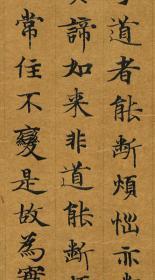 道者能斷煩惱亦
諦如来非道能斷
常住不變是故為